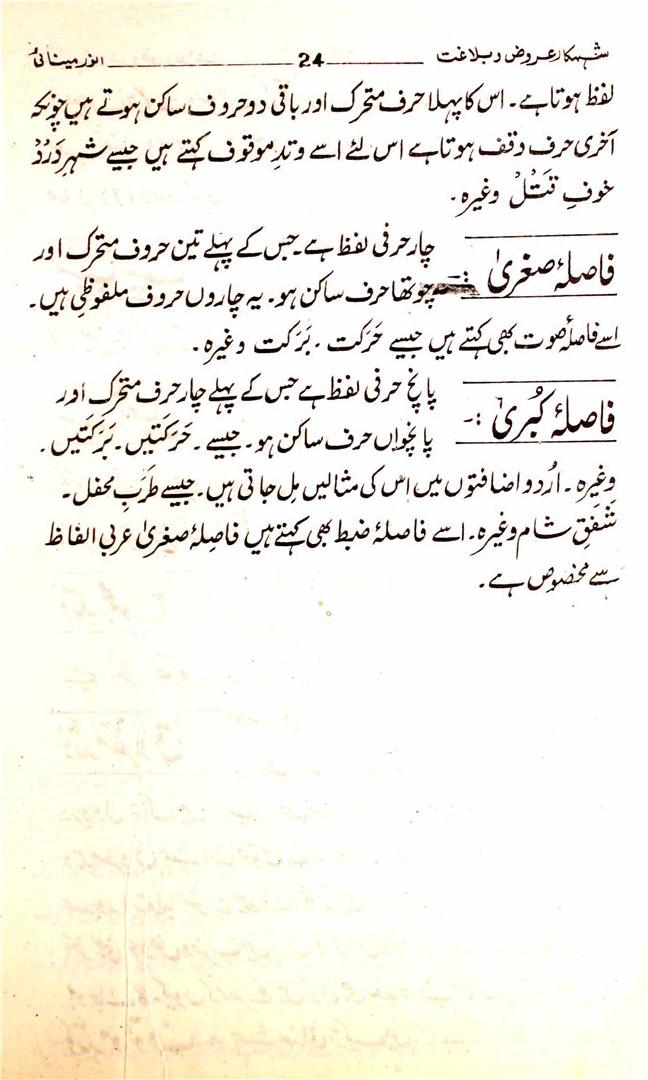 شہکار عروض و بلاغت 24 انور مینائی
لفظ ہوتا ہے۔ اس کا پہلا حرف متحرک اور باقی دو حروف ساکن ہوتے ہیں چونکہ
آخری حرف وقف ہوتا ہے اس لئے اسے وتدِ موقوف کہتے ہیں جیسے شہر دَرْدْ
خوف قَتْلْ وغیرہ۔
فاصلۂ صغریٰ :- چار حرفی لفظ ہے۔ جس کے پہلے تین حروف متحرک اور
چوتھا حرف ساکن ہو۔ یہ چاروں حروف ملفوظی ہیں۔
اسے فاصلۂ صوت بھی کہتے ہیں جیسے حَرَکت ۔ بَرَکت وغیرہ۔
فاصلۂ کُبریٰ :- پانچ حرفی لفظ ہے جس کے پہلے چار حرف متحرک اور
پانچواں حرف ساکن ہو۔ جیسے ۔ حَرَکَتیں۔ بَرَکَتیں۔
وغیرہ ۔ اُردو اضافتوں میں اس کی مثالیں مِل جاتی ہیں۔ جیسے طَرَبِ محفل۔
شَفَقِ شام وغیرہ۔ اسے فاصلۂ ضبط بھی کہتے ہیں فاصِلۂ صغریٰ عربی الفاظ
سے مخصوص ہے۔